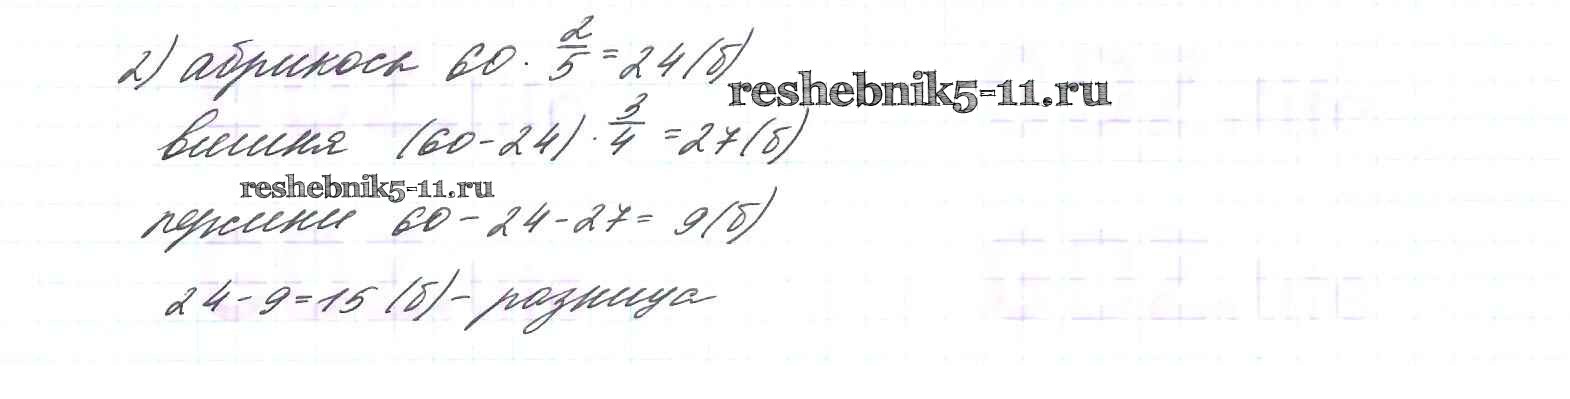 2) абрикосы 60 · 2/5 = 24 (б)
reshebnik5-11.ru
вишня (60 - 24) · 3/4 = 27 (б)
reshebnik5-11.ru
60 - 24 - 27 = 9 (б)
24 - 9 = 15 (б) - разница